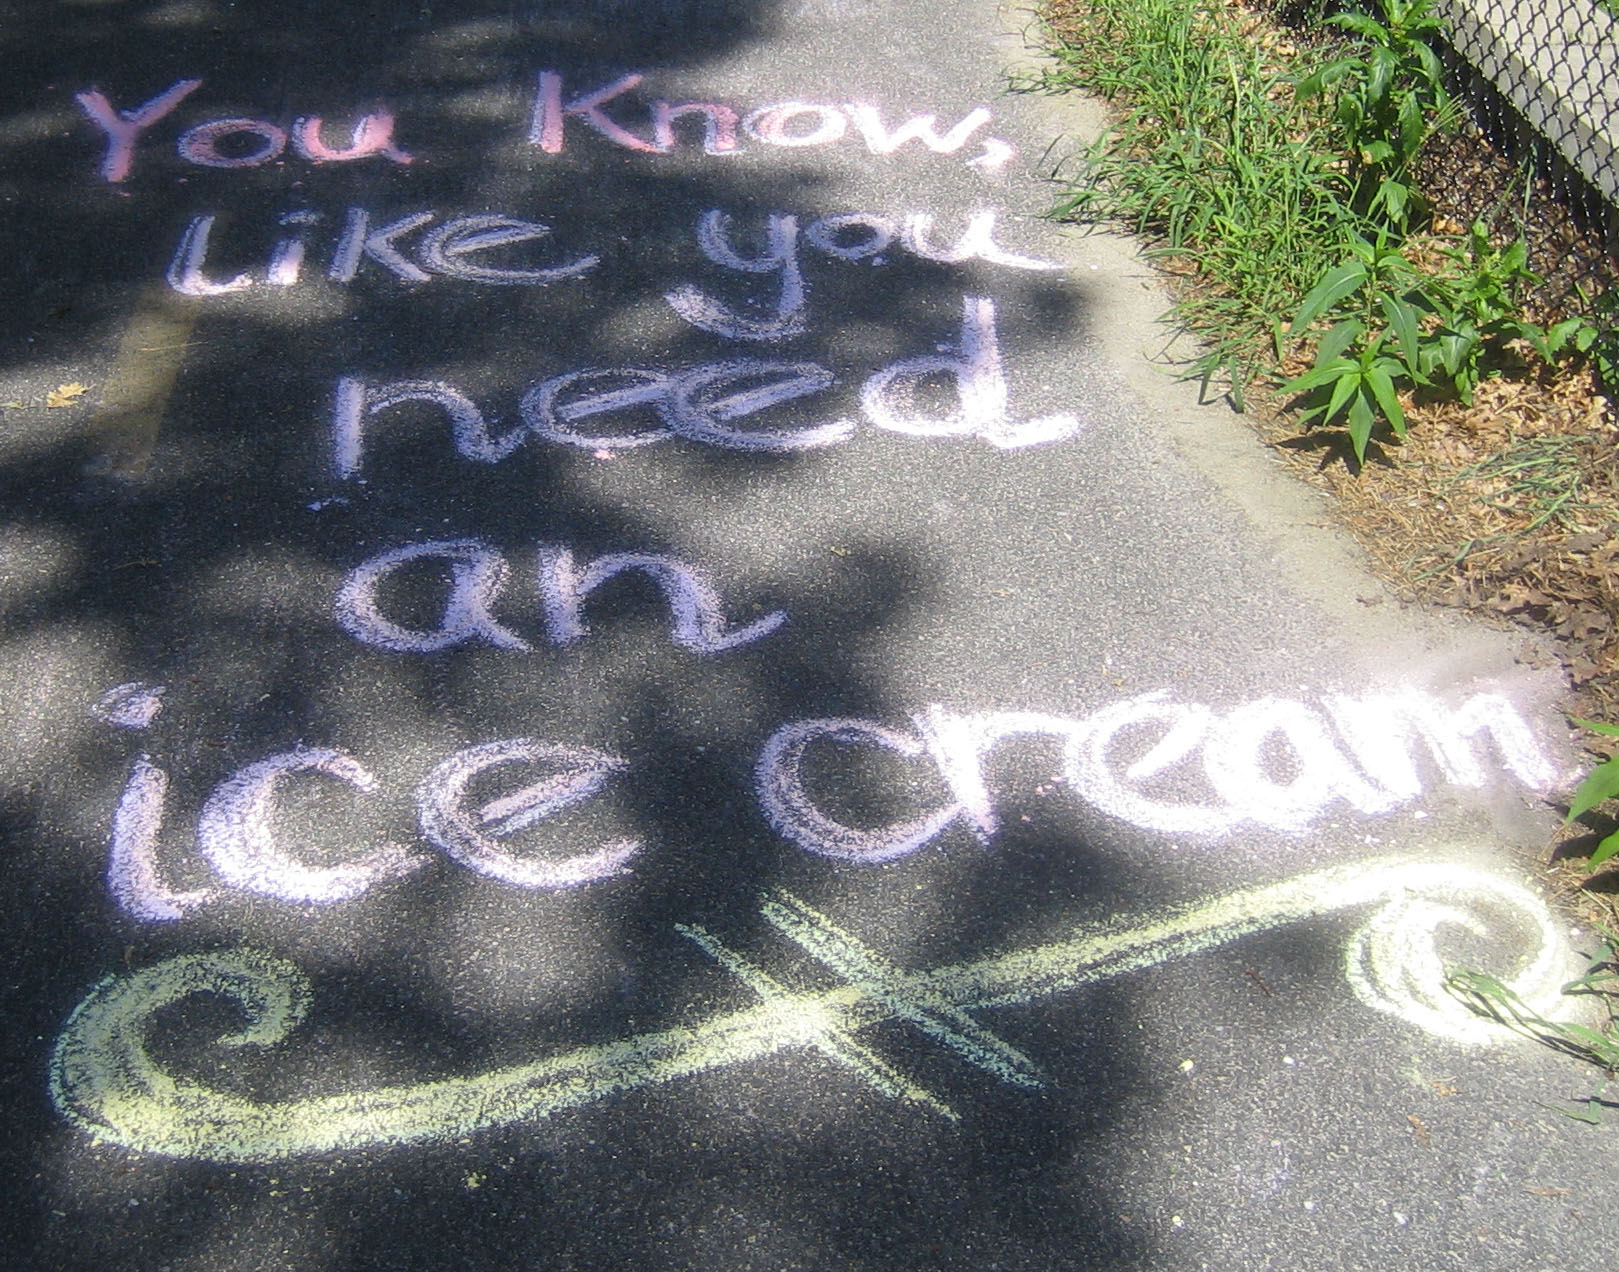 You Know,
Like you
need
an
ice cream